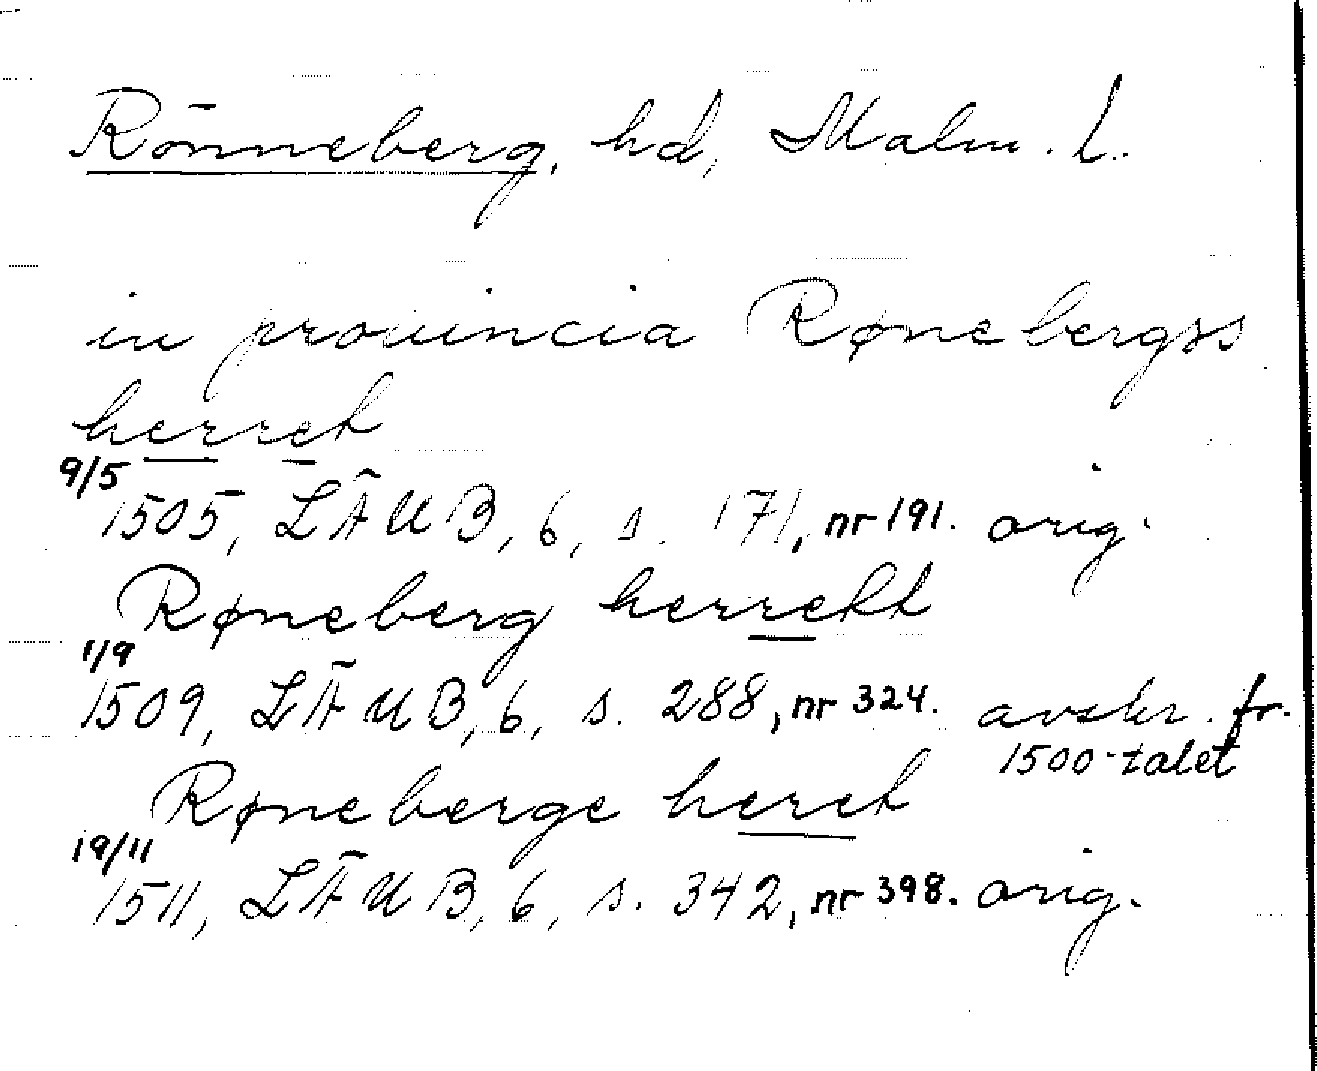 Rönneberg, hd, Malm. l.
in prouincia Rønebergss
herret
9/5
1505, LÄUB, 6, s. 171, nr 191. orig.
Røneberg herrett
1/9
1509, LÄUB, 6, s. 288, nr 324. avskr. fr.
1500-talet
Røneberge heret
19/11
1511, LÄUB, 6, s. 342, nr 398. orig.